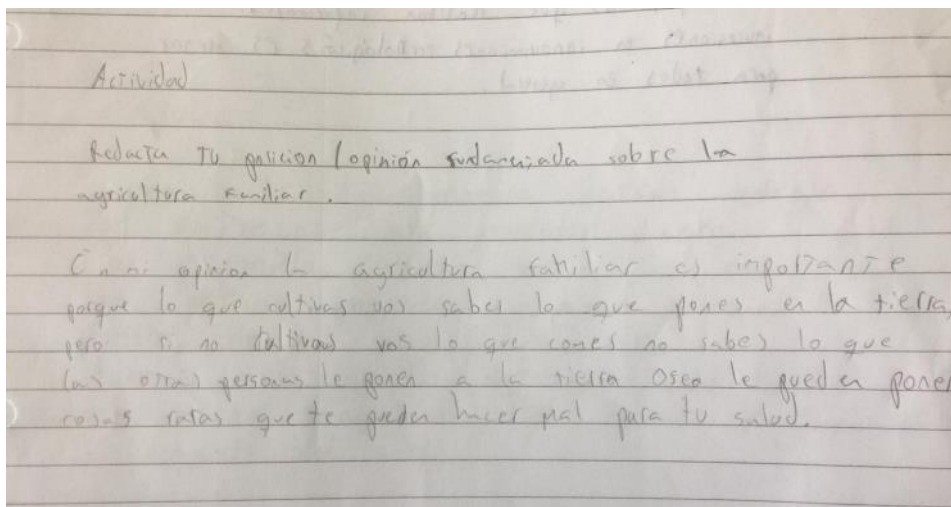 Actividad
Redacta tu posicion / opinión fundamentada sobre la
agricultura familiar.
En mi opinion la agricultura familiar es importante
porque lo que cultivas vos sabes lo que pones en la tierra,
pero si no cultivas vos lo que comes no sabes lo que
las otras personas le ponen a la tierra osea le pueden poner
cosas raras que te pueden hacer mal para tu salud.